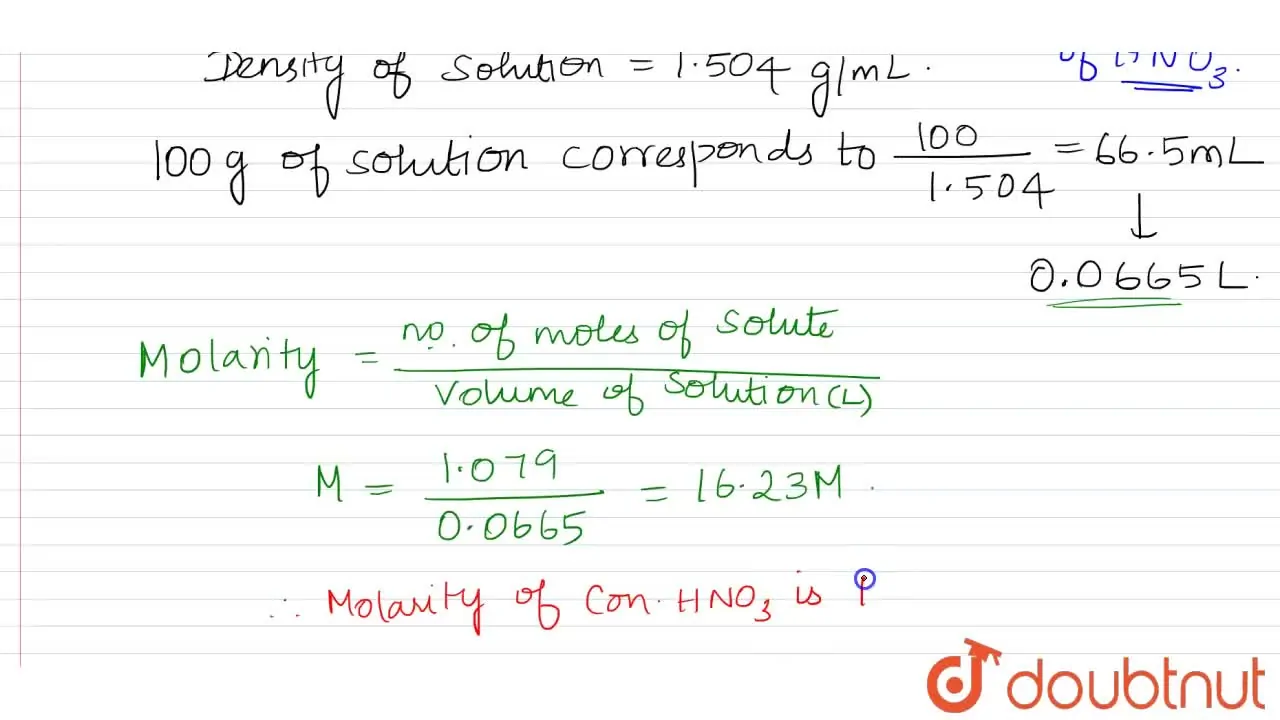 Density of solution = 1.504 g/mL.
of HNO3.
100 g of solution corresponds to 100/1.504 = 66.5mL
↓
0.0665 L.
Molarity = no. of moles of solute / volume of solution (L)
M = 1.079/0.0665 = 16.23M.
∴ Molarity of Con. HNO3 is 1
doubtnut